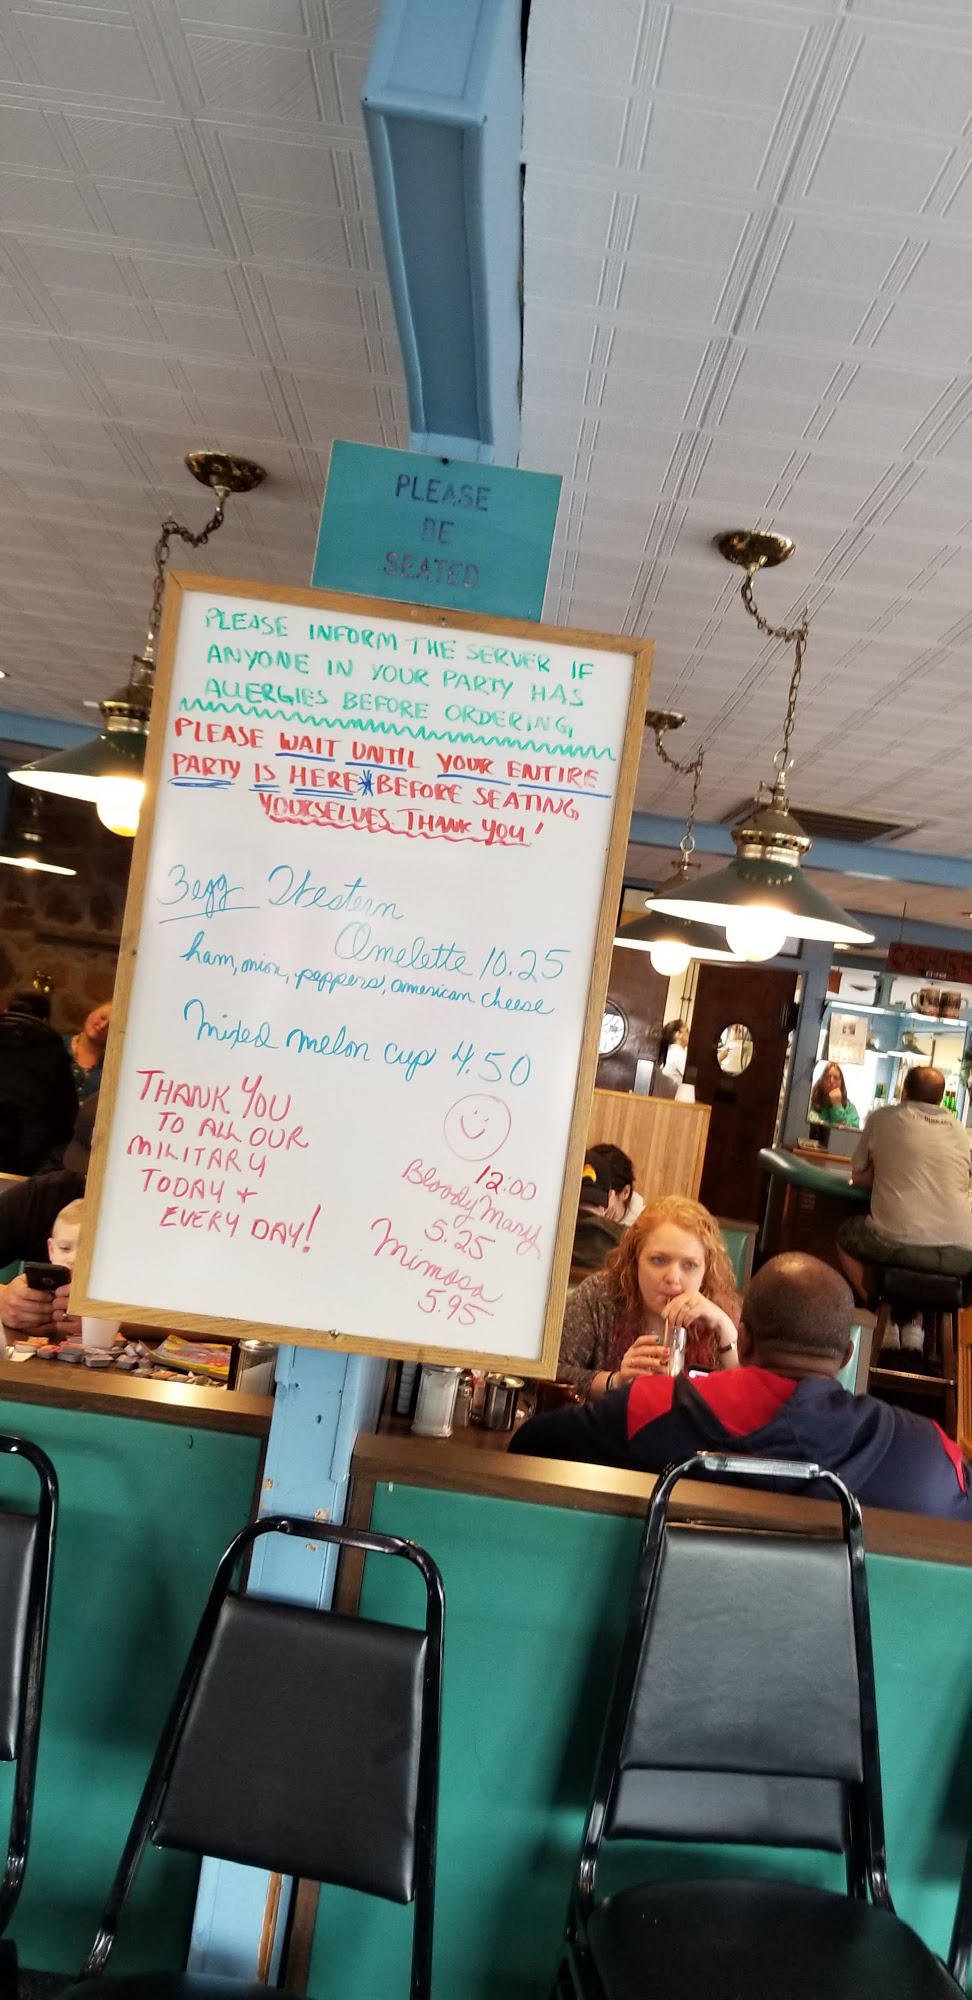 PLEASE
BE
SEATED
PLEASE INFORM THE SERVER IF
ANYONE IN YOUR PARTY HAS
ALLERGIES BEFORE ORDERING,
PLEASE WAIT UNTIL YOUR ENTIRE
PARTY IS HERE*BEFORE SEATING
YOURSELVES. THANK YOU!
3 egg Western
Omelette 10.25
ham, onion, peppers, american cheese
Mixed melon cup 4.50
THANK YOU
TO ALL OUR
MILITARY
TODAY +
EVERY DAY!
12:00
Bloody Mary
5.25
Mimosa
5.95